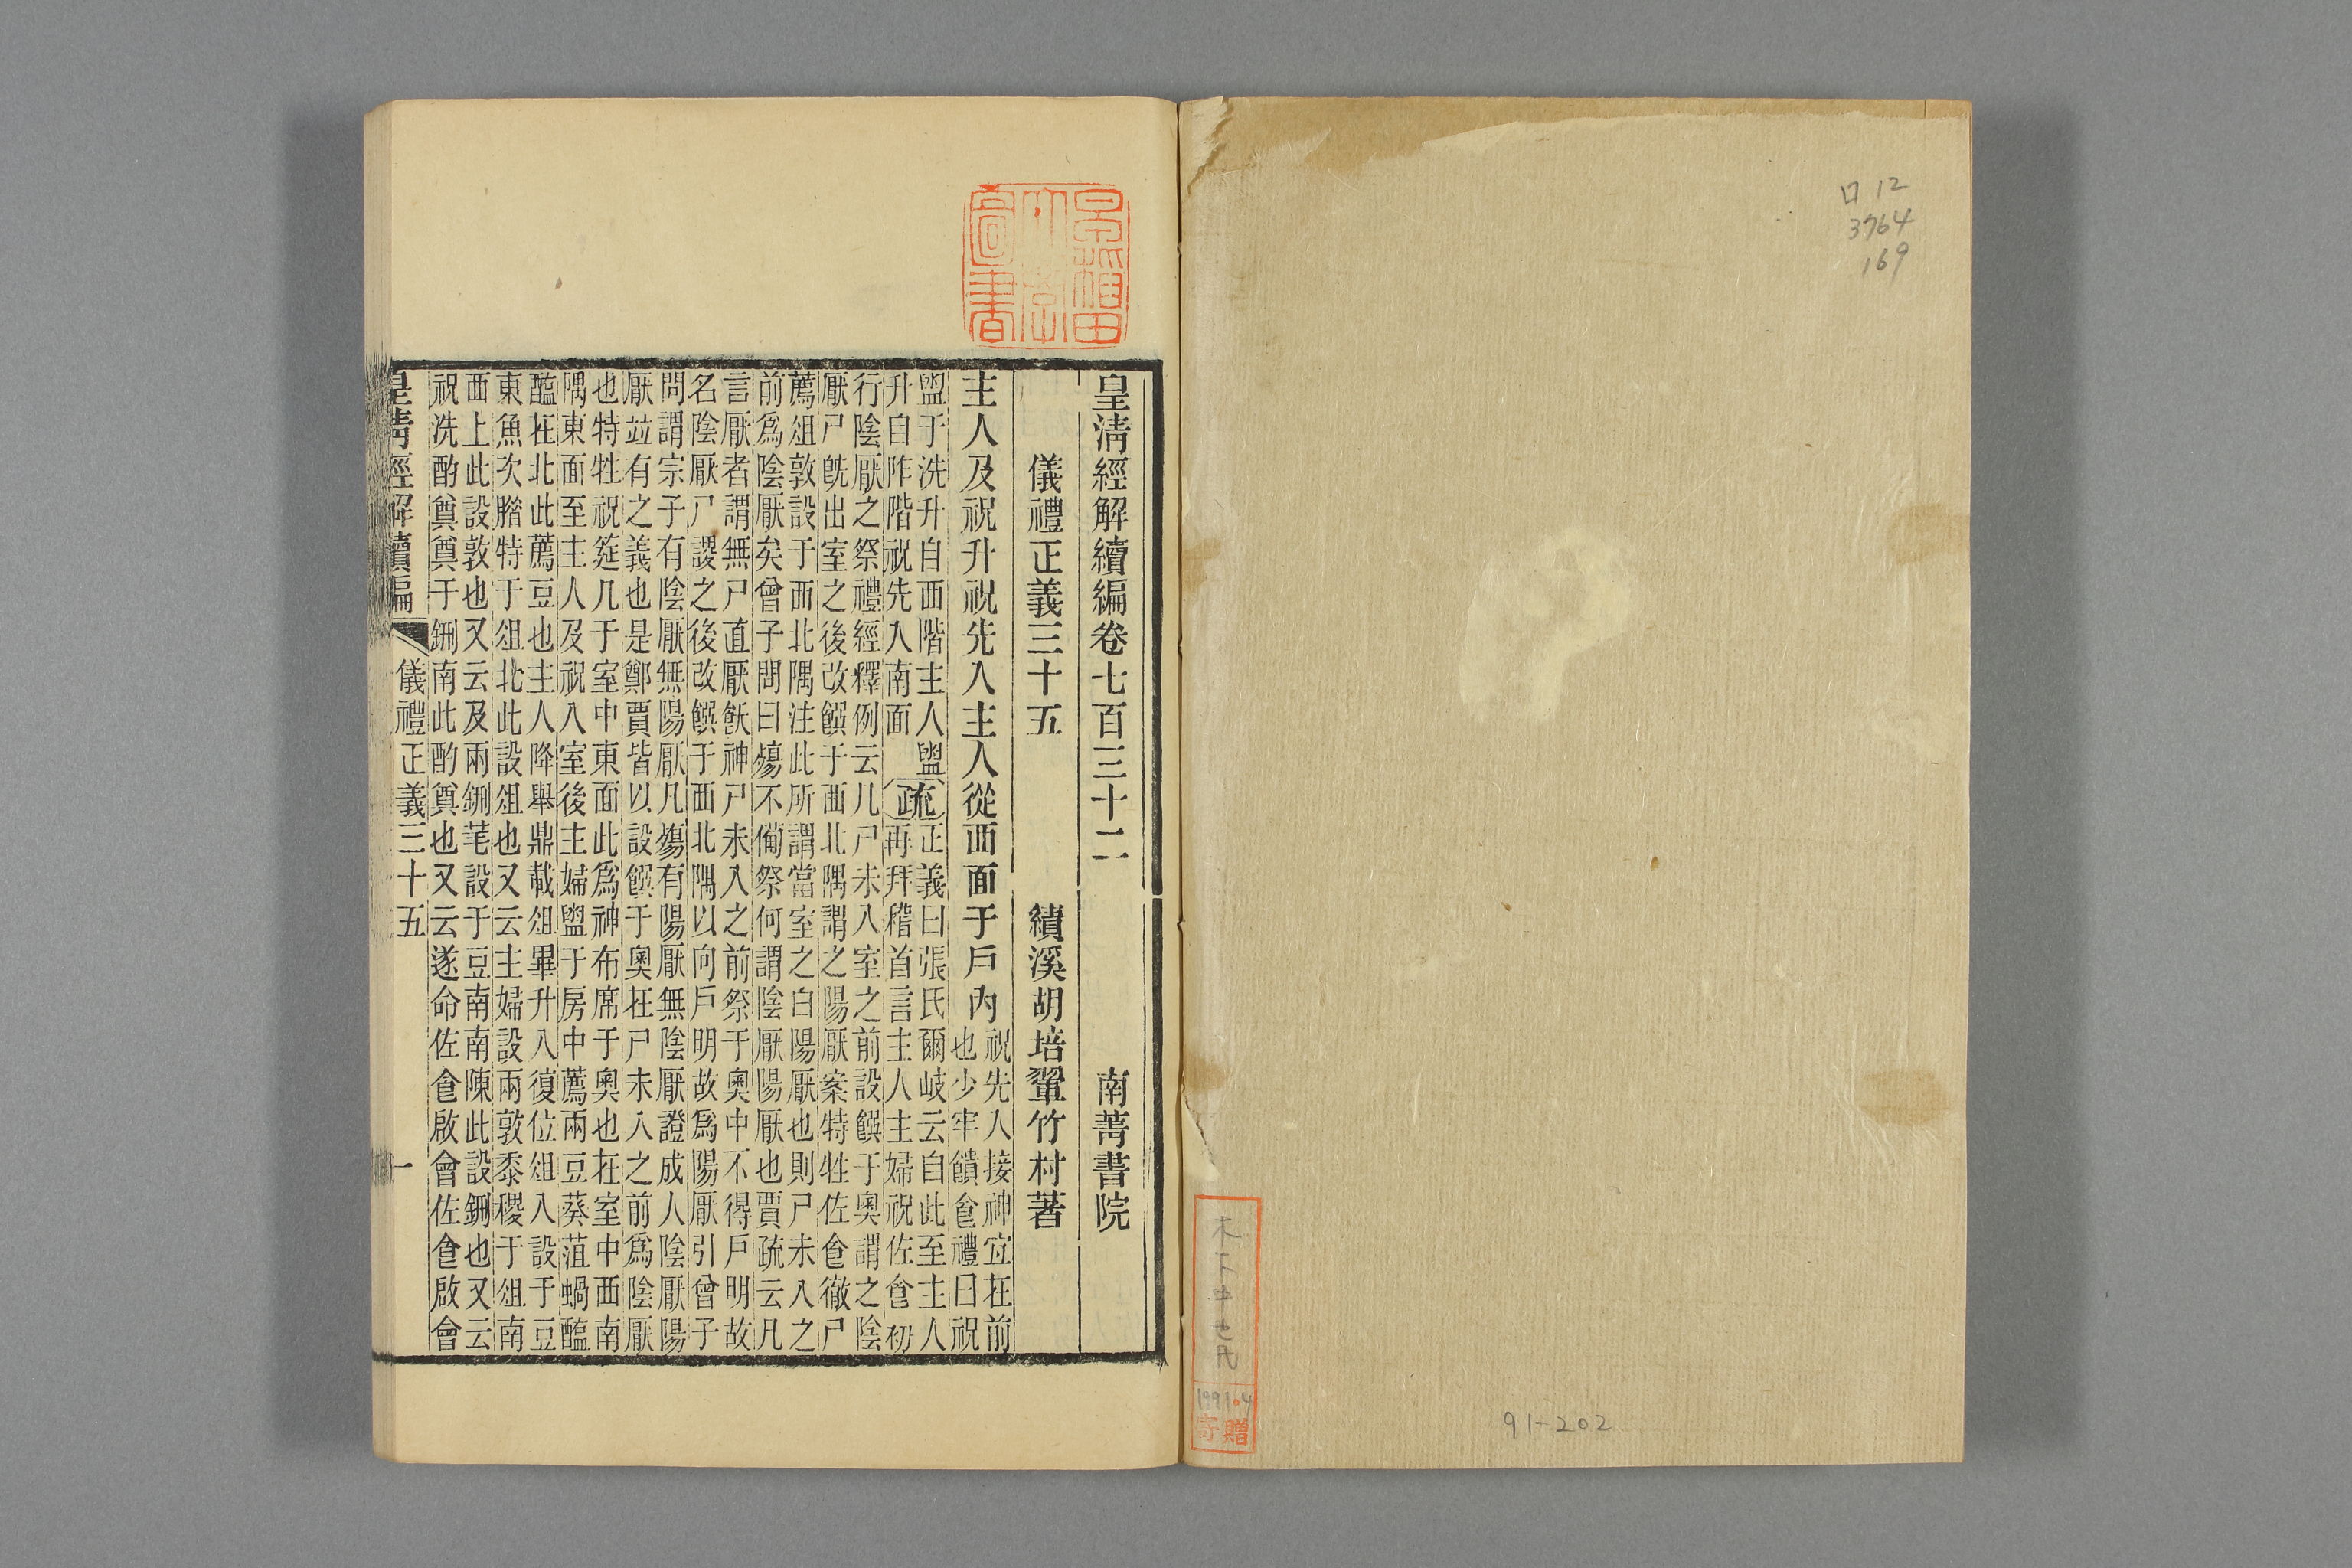 口12
3764
169
木下中也氏
1991.4
寄贈
91-202
皇淸經解續編卷七百三十二
南菁書院
儀禮正義三十五
績溪胡培翬竹村著
主人及祝升祝先入主人從西面于戶內
祝先入接神宜在前
也少牢饋食禮曰祝
盥于洗升自西階主人盥
升自阼階祝先入南面
疏
正義曰張氏爾岐云自此至主人
再拜稽首言主人主婦祝佐食初
行陰厭之祭禮經釋例云凡尸未入室之前設饌于奧謂之陰
厭尸旣出室之後改饌于西北隅謂之陽厭案特牲佐食徹尸
薦俎敦設于西北隅注此所謂當室之白陽厭也則尸未入之
前爲陰厭矣曾子問曰殤不備祭何謂陰厭陽厭也賈疏云凡
言厭者謂無尸直厭飫神尸未入之前祭于奧中不得戶明故
名陰厭尸謖之後改饌于西北隅以向戶明故爲陽厭引曾子
問謂宗子有陰厭無陽厭凡殤有陽厭無陰厭證成人陰厭陽
厭竝有之義也是鄭賈皆以設饌于奧在尸未入之前爲陰厭
也特牲祝筵几于室中東面此爲神布席于奧也在室中西南
隅東面至主人及祝入室後主婦盥于房中薦兩豆葵菹蝸醢
醢在北此薦豆也主人降舉鼎載俎畢升入復位俎入設于豆
東魚次腊特于俎北此設俎也又云主婦設兩敦黍稷于俎南
西上此設敦也又云及兩鉶芼設于豆南南陳此設鉶也又云
祝洗酌奠奠于鉶南此酌奠也又云遂命佐食啟會佐食啟會
皇淸經解續編
儀禮正義三十五
一